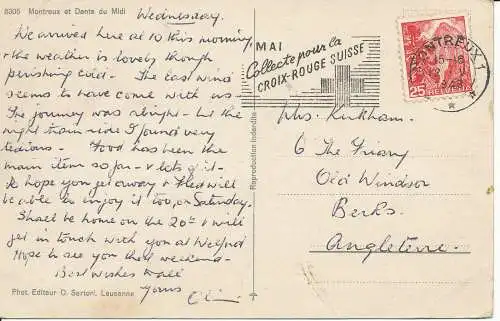 8305 Montreux et Dents du Midi
Wednesday.
We arrived here at 10 this morning,
& the weather is lovely though
perishing cold. The East wind
seems to have come with us.
The journey was alright - but the
night train ride I found very
tedious. Food has been the
main item so far - & lots of it.
I do hope you get away & that will
be able to enjoy it too, on Saturday.
Shall be home on the 20th & will
get in touch with you at Welford
Hope to see you that weekend.
Best wishes to all
Yours
Phot. Editeur O. Sartori, Lausanne
Reproduction interdite
MAI
Collecte pour la
CROIX-ROUGE SUISSE
MONTREUX 1
25 HELVETIA
Mrs. Kirkham.
6 The Friary
Old Windsor
Berks.
Angleterre.